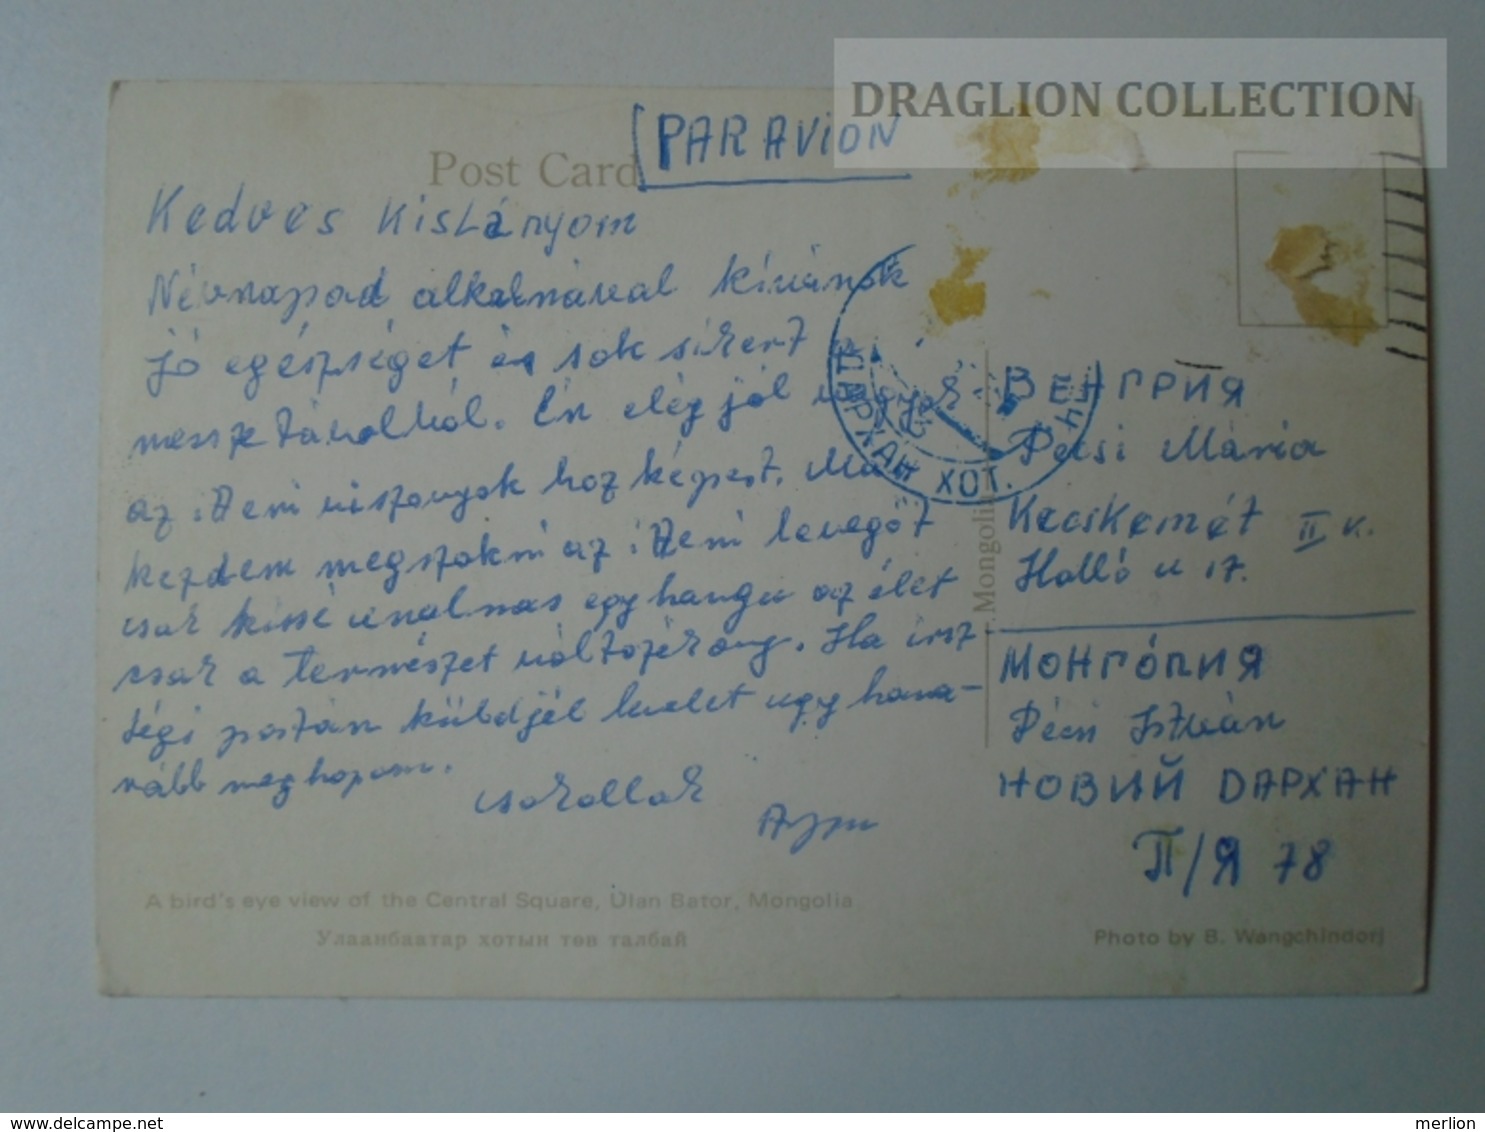 DRAGLION COLLECTION
PAR AVION
Post Card
Kedves Kislányom
Névnapod alkalmával kívánok
jó egészséget és sok sikert
messze távolból. Én elég jól vagyok
az itteni viszonyok hoz képest. Már
kezdem megszokni az itteni levegőt
csak kissé unalmas egyhangu az élet
csak a természet változékony. Ha
postán küldjél levelet ugy hama-
rább meg kapom.
csokollak
Apu
ДАРХАН ХОТ.
Mongolia
ВЕНГРИЯ
Pécsi Mária
Kecskemét II k.
Holló u 17.
МОНГОЛИЯ
Pécsi István
НОВИЙ DАРХАН
П/Я 78
A bird's eye view of the Central Square, Ulan Bator, Mongolia
Улаанбаатар хотын төв талбай
Photo by B. Wangchindorj
www.delcampe.net
merlion